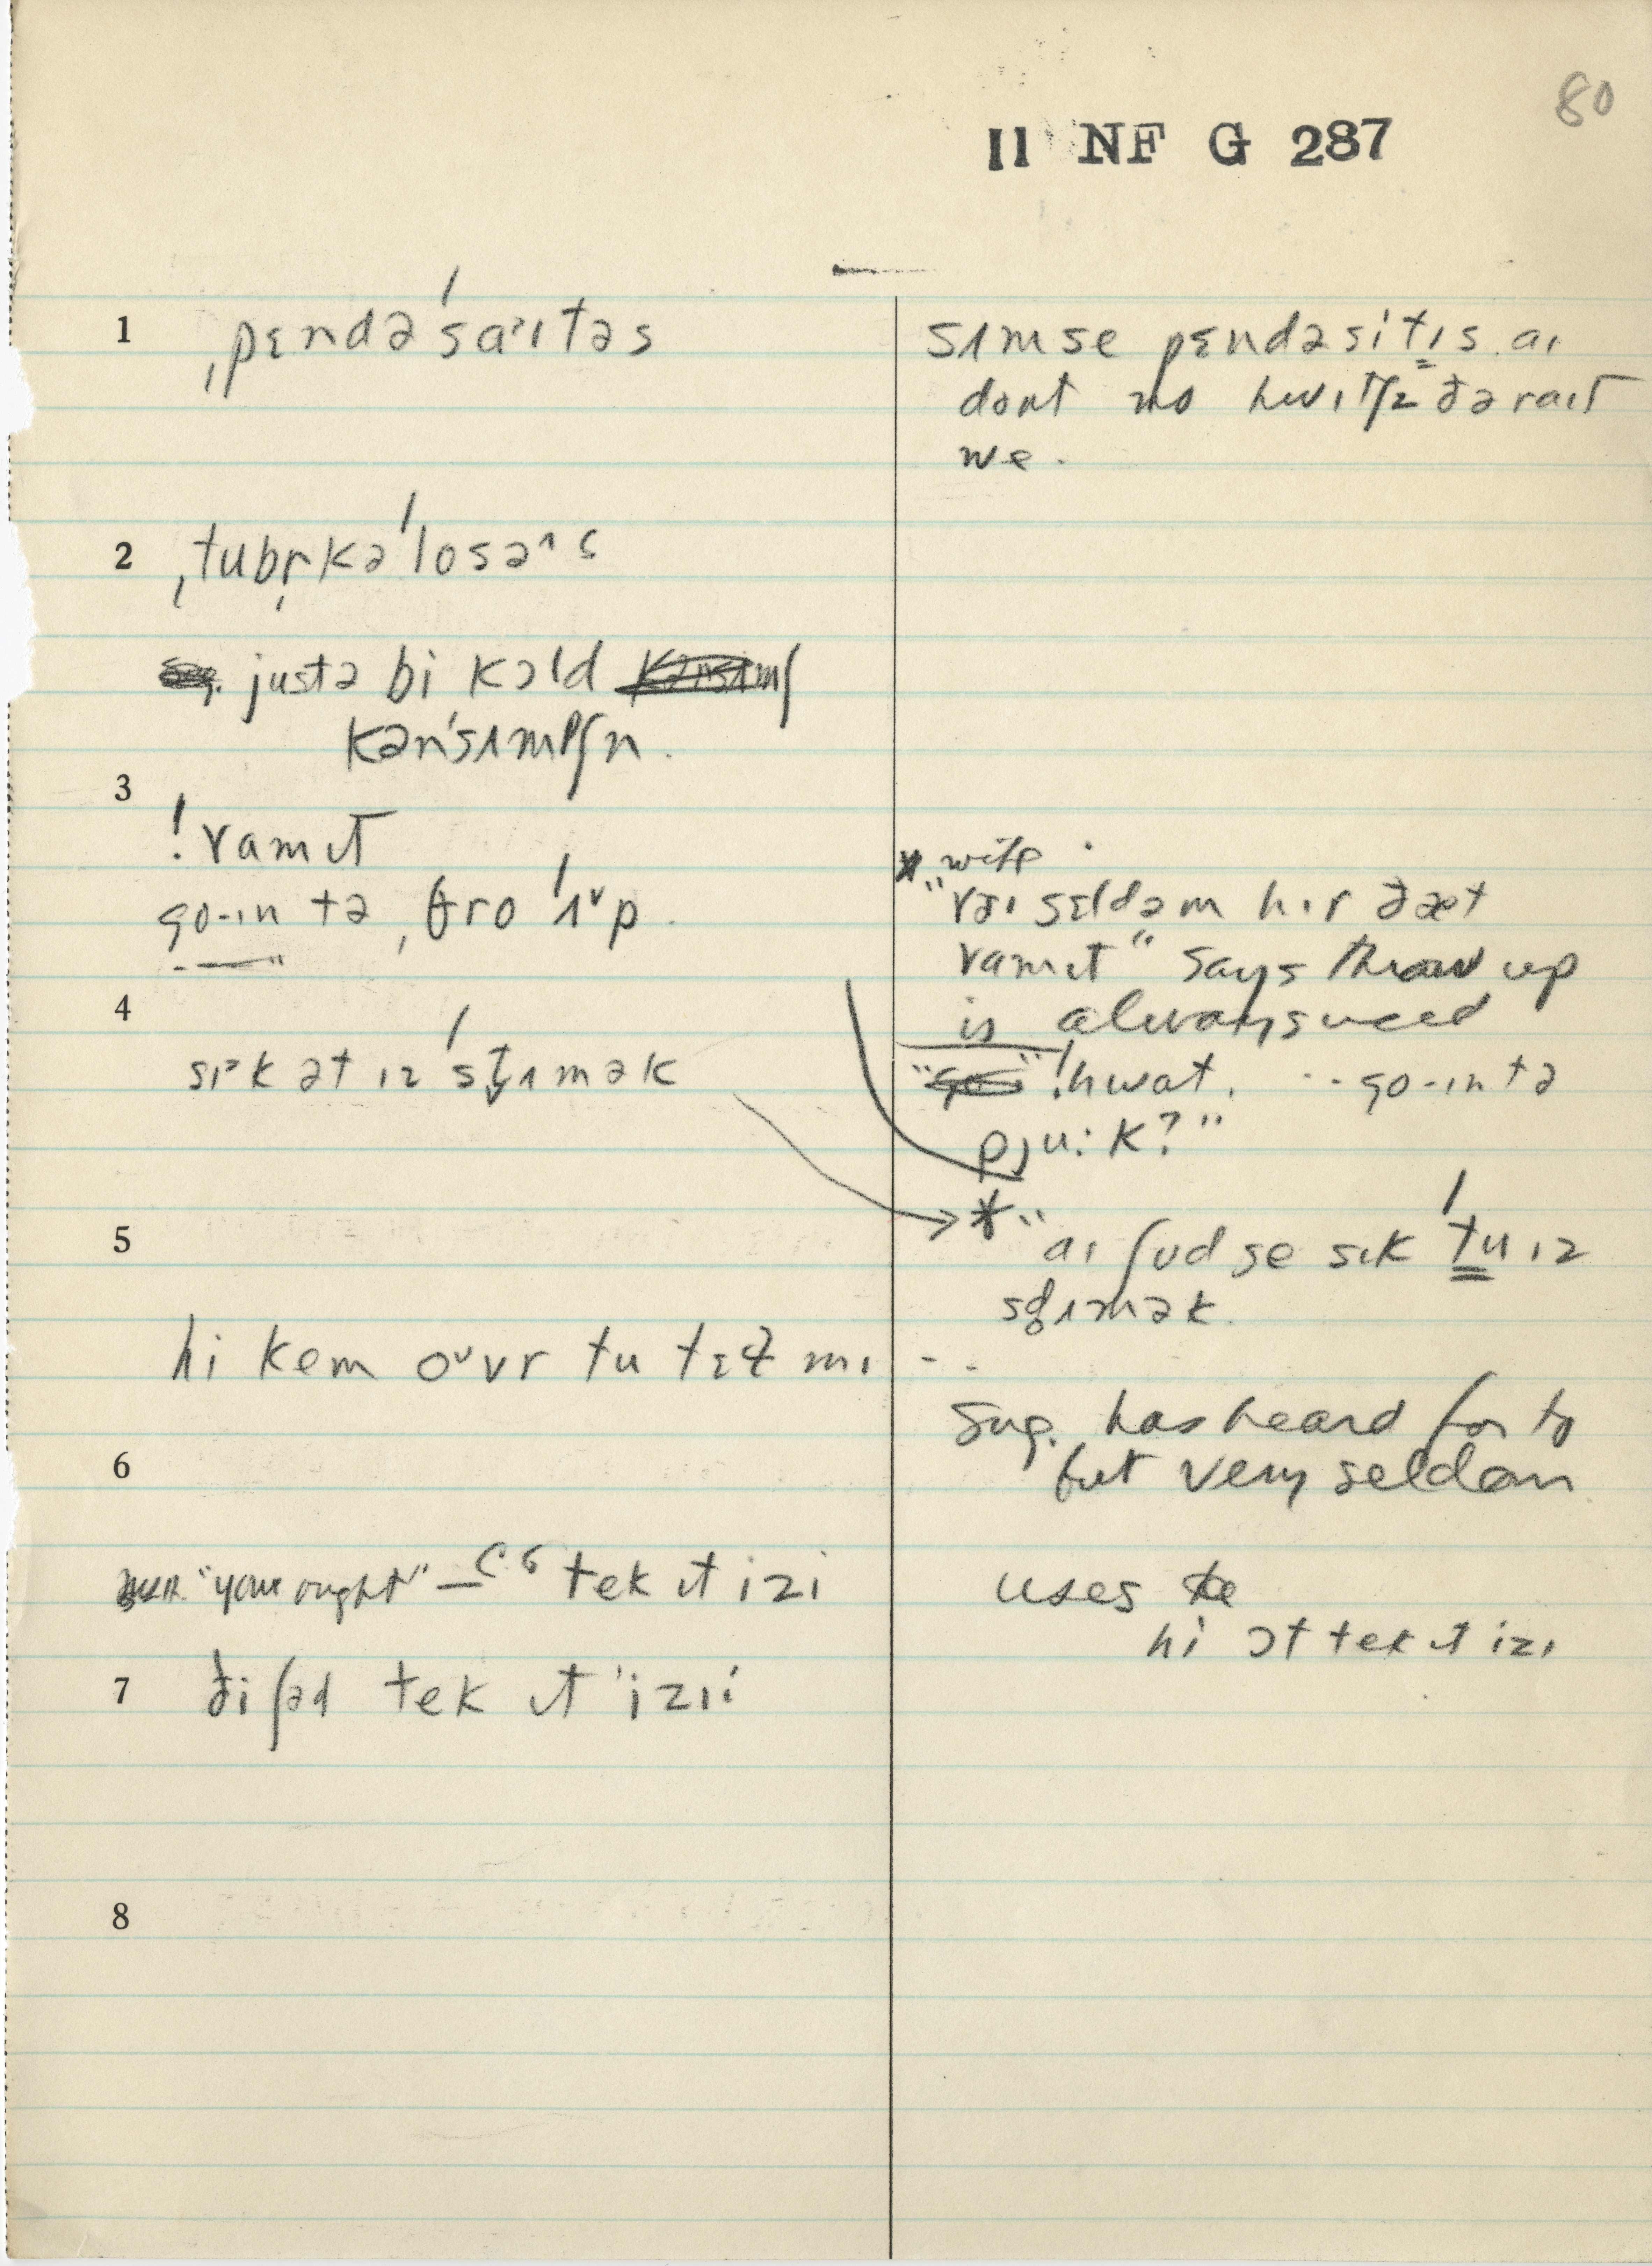 80
II NF G 287
1 ˌpɛndəˈsaᵊɪtəs
sʌmse pɛndəsitɪs aɪ
dont no hwɪtʃɪz ðə raɪt
we.
2 ˌtubr̩kəˈlosəˆs
justə bi kɔld
kənˈsʌmpʃn.
3
!vamɪt
go-ɪn tə ˌθro ˈʌᵛp.
* wife
"vɛɪ sɛldəm hɪr ðæt
vamɪt" says throw up
is always used
4
sɪᵊk ət ɪz ˈst̬ʌmək
"go" !hwat. .. go-ɪn tə
pju:k?"
* "aɪ ʃud se sɪk ˈtu ɪz
sd̥ʌmək.
5
hi kem oᵛvr tu tɛl mɪ - -
sug. has heard for to
but very seldom
6
"you ought" — C.G tek ɪt izi
uses
hi ɔt tek ɪt izɪ
7 ði ʃəd tek ɪt ˈizɪi
8